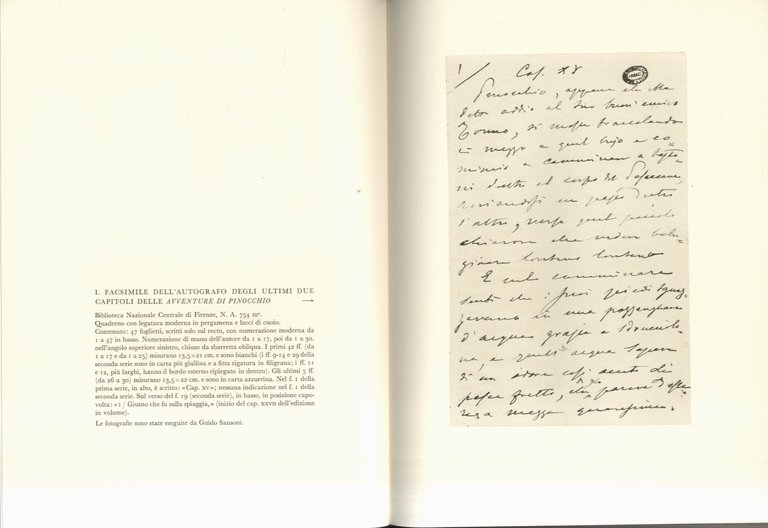 I. FACSIMILE DELL'AUTOGRAFO DEGLI ULTIMI DUE
CAPITOLI DELLE AVVENTURE DI PINOCCHIO →
Biblioteca Nazionale Centrale di Firenze, N. A. 754 mº.
Quaderno con legatura moderna in pergamena e lacci di cuoio.
Contenuto: 47 foglietti, scritti solo sul recto, con numerazione moderna da
1 a 47 in basso. Numerazione di mano dell'autore da 1 a 17, poi da 1 a 30,
nell'angolo superiore sinistro, chiuso da sbarretta obliqua. I primi 42 ff. (da
1 a 17 e da 1 a 25) misurano 13,5×21 cm. e sono bianchi (i ff. 9-14 e 29 della
seconda serie sono in carta più giallina e a fitta rigatura in filigrana; i ff. 11
e 12, più larghi, hanno il bordo esterno ripiegato in dentro). Gli ultimi 5 ff.
(da 26 a 30) misurano 13,5×22 cm. e sono in carta azzurrina. Nel f. 1 della
prima serie, in alto, è scritto: «Cap. XV»; nessuna indicazione nel f. 1 della
seconda serie. Sul verso del f. 19 (seconda serie), in basso, in posizione capo-
volta: «1 / Giunto che fu sulla spiaggia,» (inizio del cap. XXVII dell'edizione
in volume).
Le fotografie sono state eseguite da Guido Sansoni.
1/ Cap. XV
Pinocchio, appena che
detto addio al suo buon amico
Tonno, si mosse brancolando
in mezzo a quel bujo e co-
minciò a camminare a tasto-
ni dentro il corpo del Pescecane,
avviandosi un passo dietro
l'altro, verso quel piccolo
chiarore che vedeva balu-
ginare lontano lontano.
E nel camminare
sentì che i suoi piedi sguaz-
zavano in una pozzanghera
d'acqua grassa e sdrucciolo-
na e quell'acqua sapeva
di un odore così acuto di
pesce fritto, che gli pareva d'esse-
re a mezza quaresima.